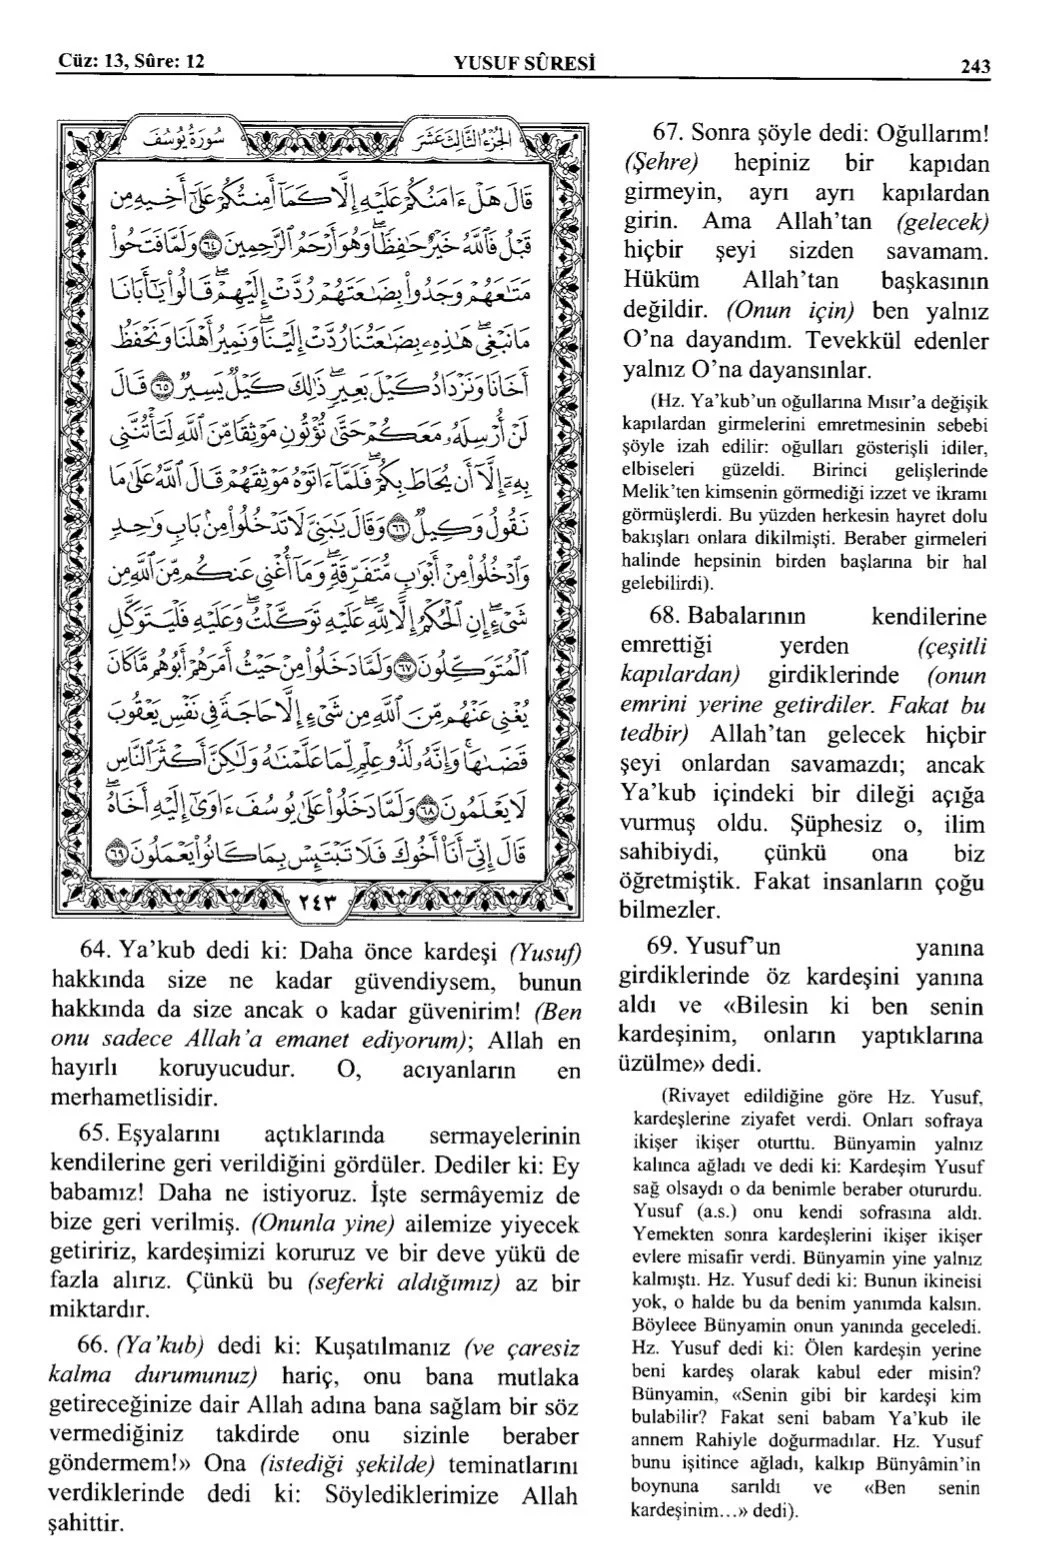 Cüz: 13, Sûre: 12
YUSUF SÛRESİ
243
سُورَةُ يُوسُفَ
الجُزْءُ الثَّالِثَ عَشَرَ
قَالَ هَلْ ءَامَنُكُمْ عَلَيْهِ إِلَّا كَمَآ أَمِنتُكُمْ عَلَىٰٓ أَخِيهِ مِن
قَبْلُ فَٱللَّهُ خَيْرٌ حَٰفِظًاۖ وَهُوَ أَرْحَمُ ٱلرَّٰحِمِينَ ٦٤ وَلَمَّا فَتَحُوا۟
مَتَٰعَهُمْ وَجَدُوا۟ بِضَٰعَتَهُمْ رُدَّتْ إِلَيْهِمْۖ قَالُوا۟ يَٰٓأَبَانَا
مَا نَبْغِىۖ هَٰذِهِۦ بِضَٰعَتُنَا رُدَّتْ إِلَيْنَاۖ وَنَمِيرُ أَهْلَنَا وَنَحْفَظُ
أَخَانَا وَنَزْدَادُ كَيْلَ بَعِيرٍۖ ذَٰلِكَ كَيْلٌ يَسِيرٌ ٦٥ قَالَ
لَنْ أُرْسِلَهُۥ مَعَكُمْ حَتَّىٰ تُؤْتُونِ مَوْثِقًا مِّنَ ٱللَّهِ لَتَأْتُنَّنِى
بِهِۦٓ إِلَّآ أَن يُحَاطَ بِكُمْۖ فَلَمَّآ ءَاتَوْهُ مَوْثِقَهُمْ قَالَ ٱللَّهُ عَلَىٰ مَا
نَقُولُ وَكِيلٌ ٦٦ وَقَالَ يَٰبَنِىَّ لَا تَدْخُلُوا۟ مِنۢ بَابٍ وَٰحِدٍ
وَٱدْخُلُوا۟ مِنْ أَبْوَٰبٍ مُّتَفَرِّقَةٍۖ وَمَآ أُغْنِى عَنكُم مِّنَ ٱللَّهِ مِن
شَىْءٍۖ إِنِ ٱلْحُكْمُ إِلَّا لِلَّهِۖ عَلَيْهِ تَوَكَّلْتُۖ وَعَلَيْهِ فَلْيَتَوَكَّلِ
ٱلْمُتَوَكِّلُونَ ٦٧ وَلَمَّا دَخَلُوا۟ مِنْ حَيْثُ أَمَرَهُمْ أَبُوهُم مَّا كَانَ
يُغْنِى عَنْهُم مِّنَ ٱللَّهِ مِن شَىْءٍ إِلَّا حَاجَةً فِى نَفْسِ يَعْقُوبَ
قَضَىٰهَاۚ وَإِنَّهُۥ لَذُو عِلْمٍ لِّمَا عَلَّمْنَٰهُ وَلَٰكِنَّ أَكْثَرَ ٱلنَّاسِ
لَا يَعْلَمُونَ ٦٨ وَلَمَّا دَخَلُوا۟ عَلَىٰ يُوسُفَ ءَاوَىٰٓ إِلَيْهِ أَخَاهُۖ
قَالَ إِنِّىٓ أَنَا۠ أَخُوكَ فَلَا تَبْتَئِسْ بِمَا كَانُوا۟ يَعْمَلُونَ ٦٩
٢٤٣
64. Ya’kub dedi ki: Daha önce kardeşi (Yusuf)
hakkında size ne kadar güvendiysem, bunun
hakkında da size ancak o kadar güvenirim! (Ben
onu sadece Allah’a emanet ediyorum); Allah en
hayırlı koruyucudur. O, acıyanların en
merhametlisidir.
65. Eşyalarını açtıklarında sermayelerinin
kendilerine geri verildiğini gördüler. Dediler ki: Ey
babamız! Daha ne istiyoruz. İşte sermâyemiz de
bize geri verilmiş. (Onunla yine) ailemize yiyecek
getiririz, kardeşimizi koruruz ve bir deve yükü de
fazla alırız. Çünkü bu (seferki aldığımız) az bir
miktardır.
66. (Ya’kub) dedi ki: Kuşatılmanız (ve çaresiz
kalma durumunuz) hariç, onu bana mutlaka
getireceğinize dair Allah adına bana sağlam bir söz
vermediğiniz takdirde onu sizinle beraber
göndermem!» Ona (istediği şekilde) teminatlarını
verdiklerinde dedi ki: Söylediklerimize Allah
şahittir.
67. Sonra şöyle dedi: Oğullarım!
(Şehre) hepiniz bir kapıdan
girmeyin, ayrı ayrı kapılardan
girin. Ama Allah’tan (gelecek)
hiçbir şeyi sizden savamam.
Hüküm Allah’tan başkasının
değildir. (Onun için) ben yalnız
O’na dayandım. Tevekkül edenler
yalnız O’na dayansınlar.
(Hz. Ya’kub’un oğullarına Mısır’a değişik
kapılardan girmelerini emretmesinin sebebi
şöyle izah edilir: oğulları gösterişli idiler,
elbiseleri güzeldi. Birinci gelişlerinde
Melik’ten kimsenin görmediği izzet ve ikramı
görmüşlerdi. Bu yüzden herkesin hayret dolu
bakışları onlara dikilmişti. Beraber girmeleri
halinde hepsinin birden başlarına bir hal
gelebilirdi).
68. Babalarının kendilerine
emrettiği yerden (çeşitli
kapılardan) girdiklerinde (onun
emrini yerine getirdiler. Fakat bu
tedbir) Allah’tan gelecek hiçbir
şeyi onlardan savamazdı; ancak
Ya’kub içindeki bir dileği açığa
vurmuş oldu. Şüphesiz o, ilim
sahibiydi, çünkü ona biz
öğretmiştik. Fakat insanların çoğu
bilmezler.
69. Yusuf’un yanına
girdiklerinde öz kardeşini yanına
aldı ve «Bilesin ki ben senin
kardeşinim, onların yaptıklarına
üzülme» dedi.
(Rivayet edildiğine göre Hz. Yusuf,
kardeşlerine ziyafet verdi. Onları sofraya
ikişer ikişer oturttu. Bünyamin yalnız
kalınca ağladı ve dedi ki: Kardeşim Yusuf
sağ olsaydı o da benimle beraber otururdu.
Yusuf (a.s.) onu kendi sofrasına aldı.
Yemekten sonra kardeşlerini ikişer ikişer
evlere misafir verdi. Bünyamin yine yalnız
kalmıştı. Hz. Yusuf dedi ki: Bunun ikincisi
yok, o halde bu da benim yanımda kalsın.
Böylece Bünyamin onun yanında geceledi.
Hz. Yusuf dedi ki: Ölen kardeşin yerine
beni kardeş olarak kabul eder misin?
Bünyamin, «Senin gibi bir kardeşi kim
bulabilir? Fakat seni babam Ya’kub ile
annem Rahiyle doğurmadılar. Hz. Yusuf
bunu işitince ağladı, kalkıp Bünyâmin’in
boynuna sarıldı ve «Ben senin
kardeşinim...» dedi).